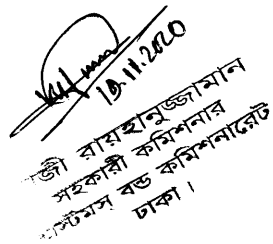 19.11.2020
রায়হানুজ্জামান
সহকারী কমিশনার
বন্ড কমিশনারেট
ঢাকা।